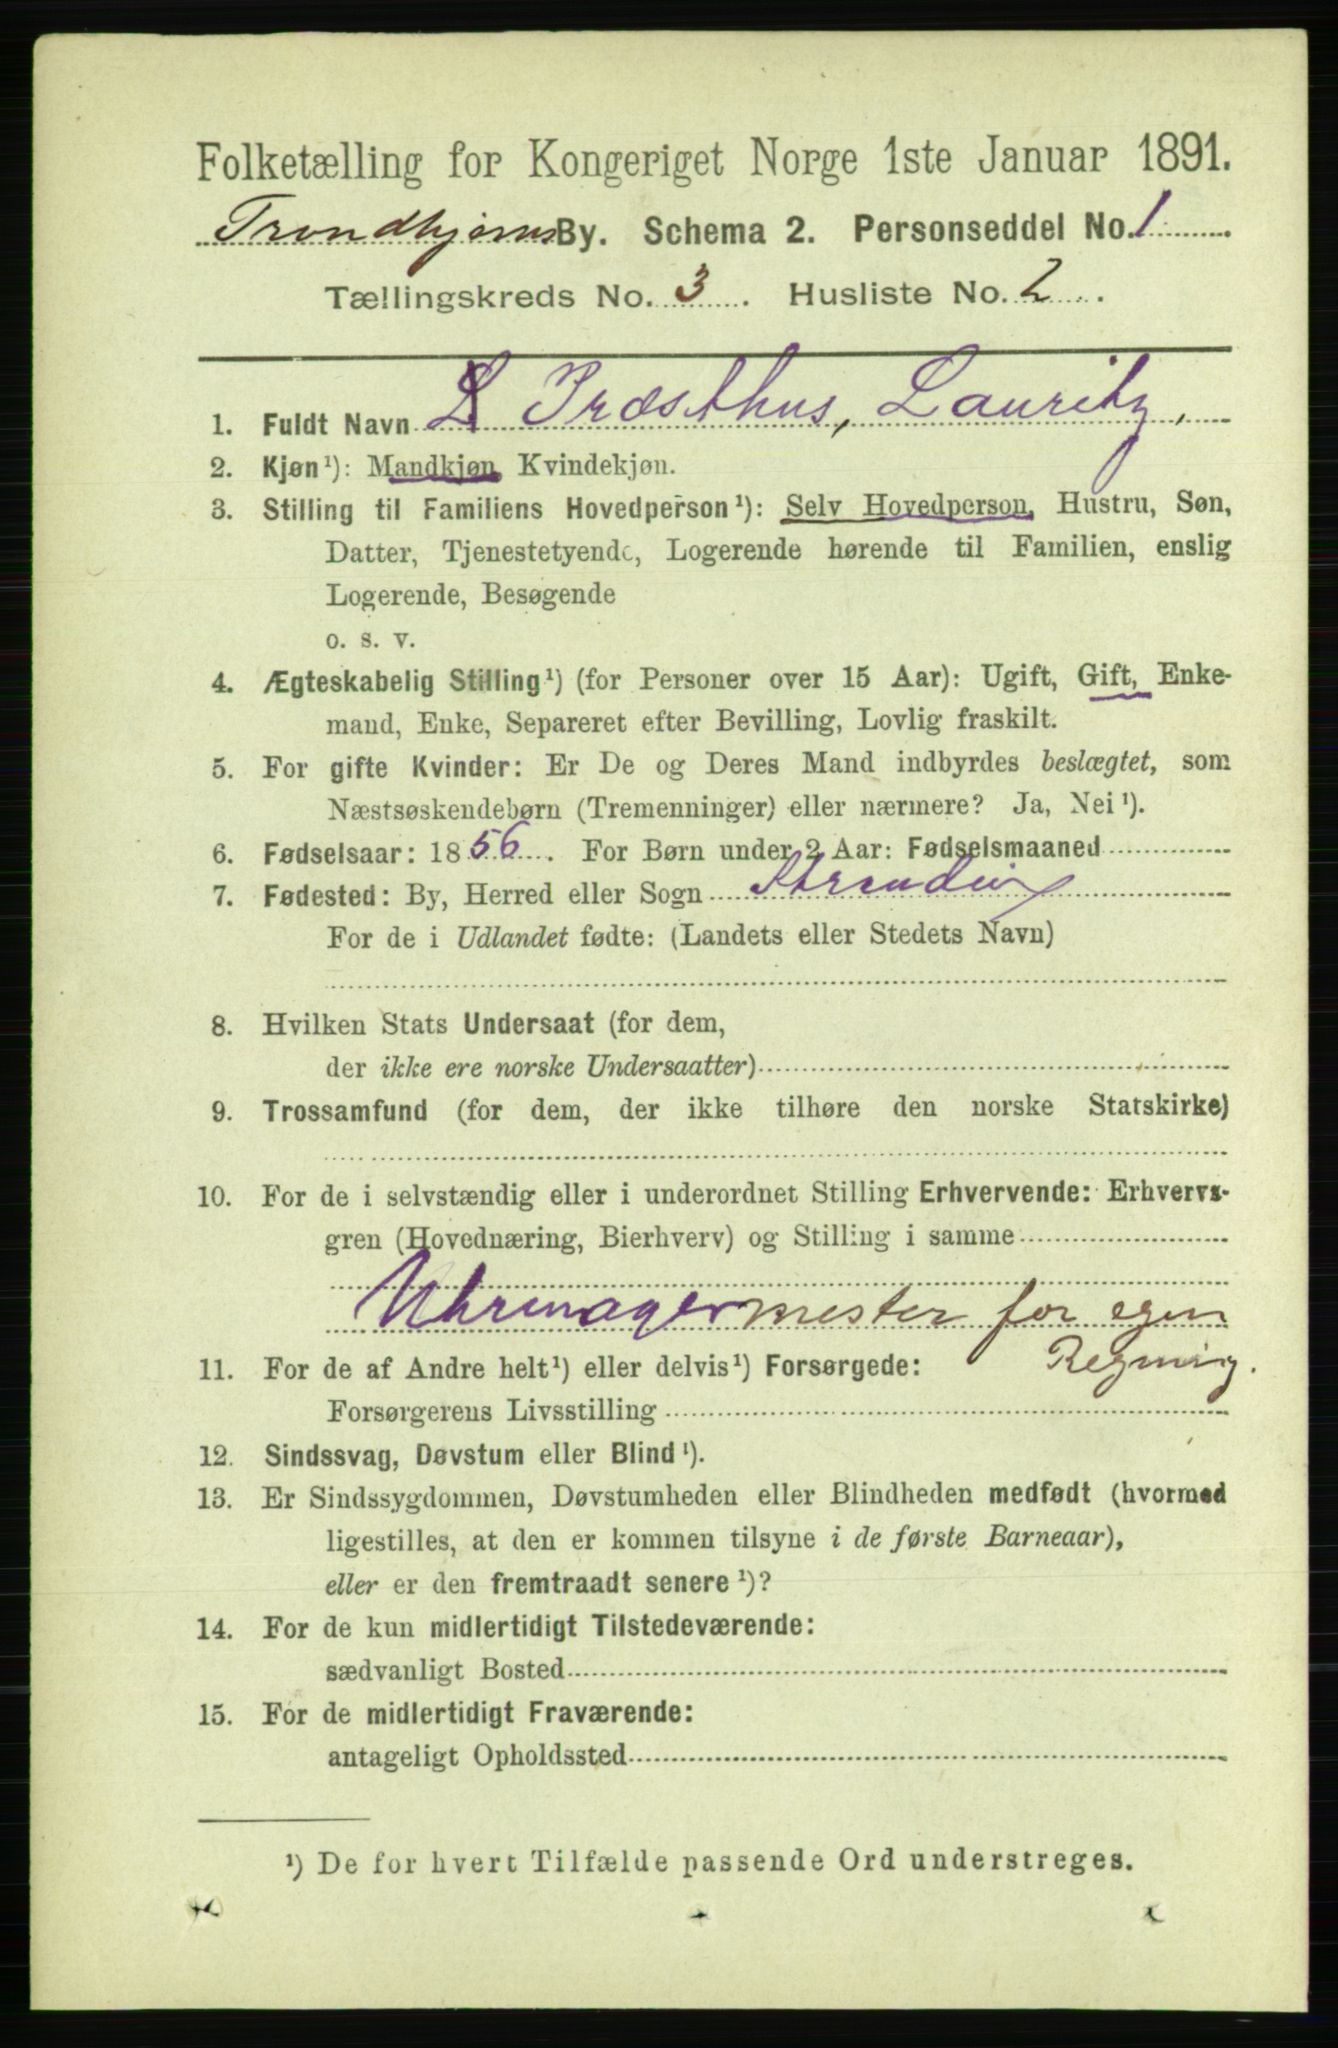 Folketælling for Kongeriget Norge 1ste Januar 1891.
Trondhjems By. Schema 2. Personseddel No. 1
Tællingskreds No. 3. Husliste No. 2.
1. Fuldt Navn L Præsthus, Lauritz,
2. Kjøn¹): Mandkjøn, Kvindekjøn.
3. Stilling til Familiens Hovedperson¹): Selv Hovedperson, Hustru, Søn,
Datter, Tjenestetyende, Logerende hørende til Familien, enslig
Logerende, Besøgende
o. s. v.
4. Ægteskabelig Stilling¹) (for Personer over 15 Aar): Ugift, Gift, Enke-
mand, Enke, Separeret efter Bevilling, Lovlig fraskilt.
5. For gifte Kvinder: Er De og Deres Mand indbyrdes beslægtet, som
Næstsøskendebørn (Tremenninger) eller nærmere? Ja, Nei¹).
6. Fødselsaar: 1856. For Børn under 2 Aar: Fødselsmaaned
7. Fødested: By, Herred eller Sogn
For de i Udlandet fødte: (Landets eller Stedets Navn)
8. Hvilken Stats Undersaat (for dem,
der ikke ere norske Undersaatter)
9. Trossamfund (for dem, der ikke tilhøre den norske Statskirke)
10. For de i selvstændig eller i underordnet Stilling Erhvervende: Erhvervs-
gren (Hovednæring, Bierhverv) og Stilling i samme
Uhrmagermester for egen
Regning.
11. For de af Andre helt¹) eller delvis¹) Forsørgede:
Forsørgerens Livsstilling
12. Sindssvag, Døvstum eller Blind¹).
13. Er Sindssygdommen, Døvstumheden eller Blindheden medfødt (hvormed
ligestilles, at den er kommen tilsyne i de første Barneaar),
eller er den fremtraadt senere¹)?
14. For de kun midlertidigt Tilstedeværende:
sædvanligt Bosted
15. For de midlertidigt Fraværende:
antageligt Opholdssted
¹) De for hvert Tilfælde passende Ord understreges.